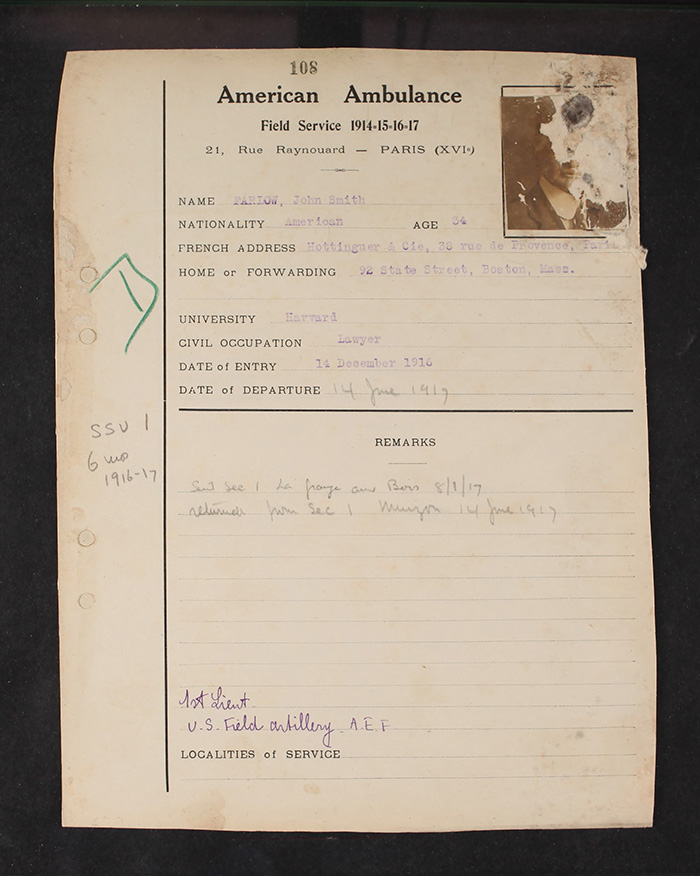 108
American Ambulance
Field Service 1914-15-16-17
21, Rue Raynouard — PARIS (XVIe)
NAME FARLOW, John Smith
NATIONALITY American AGE 34
FRENCH ADDRESS Hottinguer & Cie, 38 rue de Provence, Paris
HOME or FORWARDING 92 State Street, Boston, Mass.
UNIVERSITY Harvard
CIVIL OCCUPATION Lawyer
DATE of ENTRY 14 December 1916
DATE of DEPARTURE 14 June 1917
SSU 1
6 mo
1916-17
REMARKS
Sent Sec 1 La Grange aux Bois 8/1/17
returned from Sec 1 14 June 1917
1st Lieut
U.S. Field artillery A.E.F
LOCALITIES of SERVICE